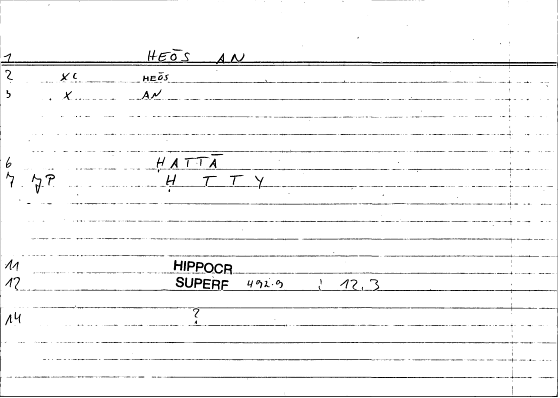 1 HEŌS AN
2 XC HEŌS
3 . X AN
6 ḤATTĀ
7 P Ḥ T T Y
11 HIPPOCR
12 SUPERF 492.9 : 12.3
14 ?